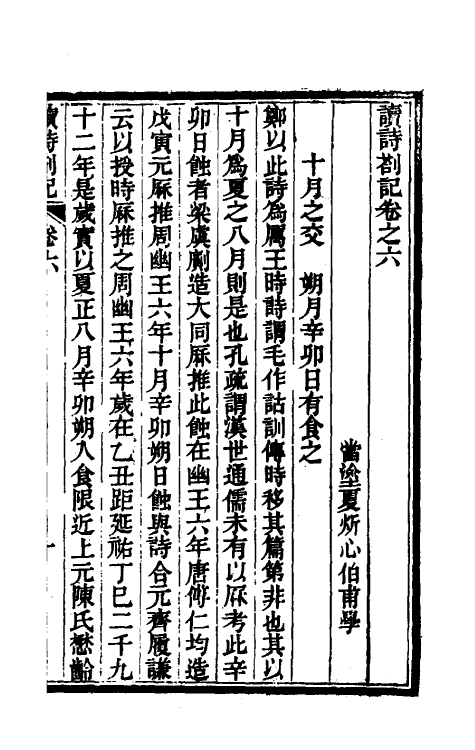 讀詩劄記卷之六
當塗夏炘心伯甫學
十月之交　朔月辛卯日有食之
鄭以此詩為厲王時詩謂毛作詁訓傳時移其篇第非也其以
十月為夏之八月則是也孔疏謂漢世通儒未有以厤考此辛
卯日蝕者梁虞劇造大同厤推此蝕在幽王六年唐傅仁均造
戊寅元厤推周幽王六年十月辛卯朔日蝕與詩合元齊履謙
云以授時厤推之周幽王六年歲在乙丑距延祐丁巳二千九
十二年是歲實以夏正八月辛卯朔入食限近上元陳氏懋齡
讀詩劄記　卷六　一